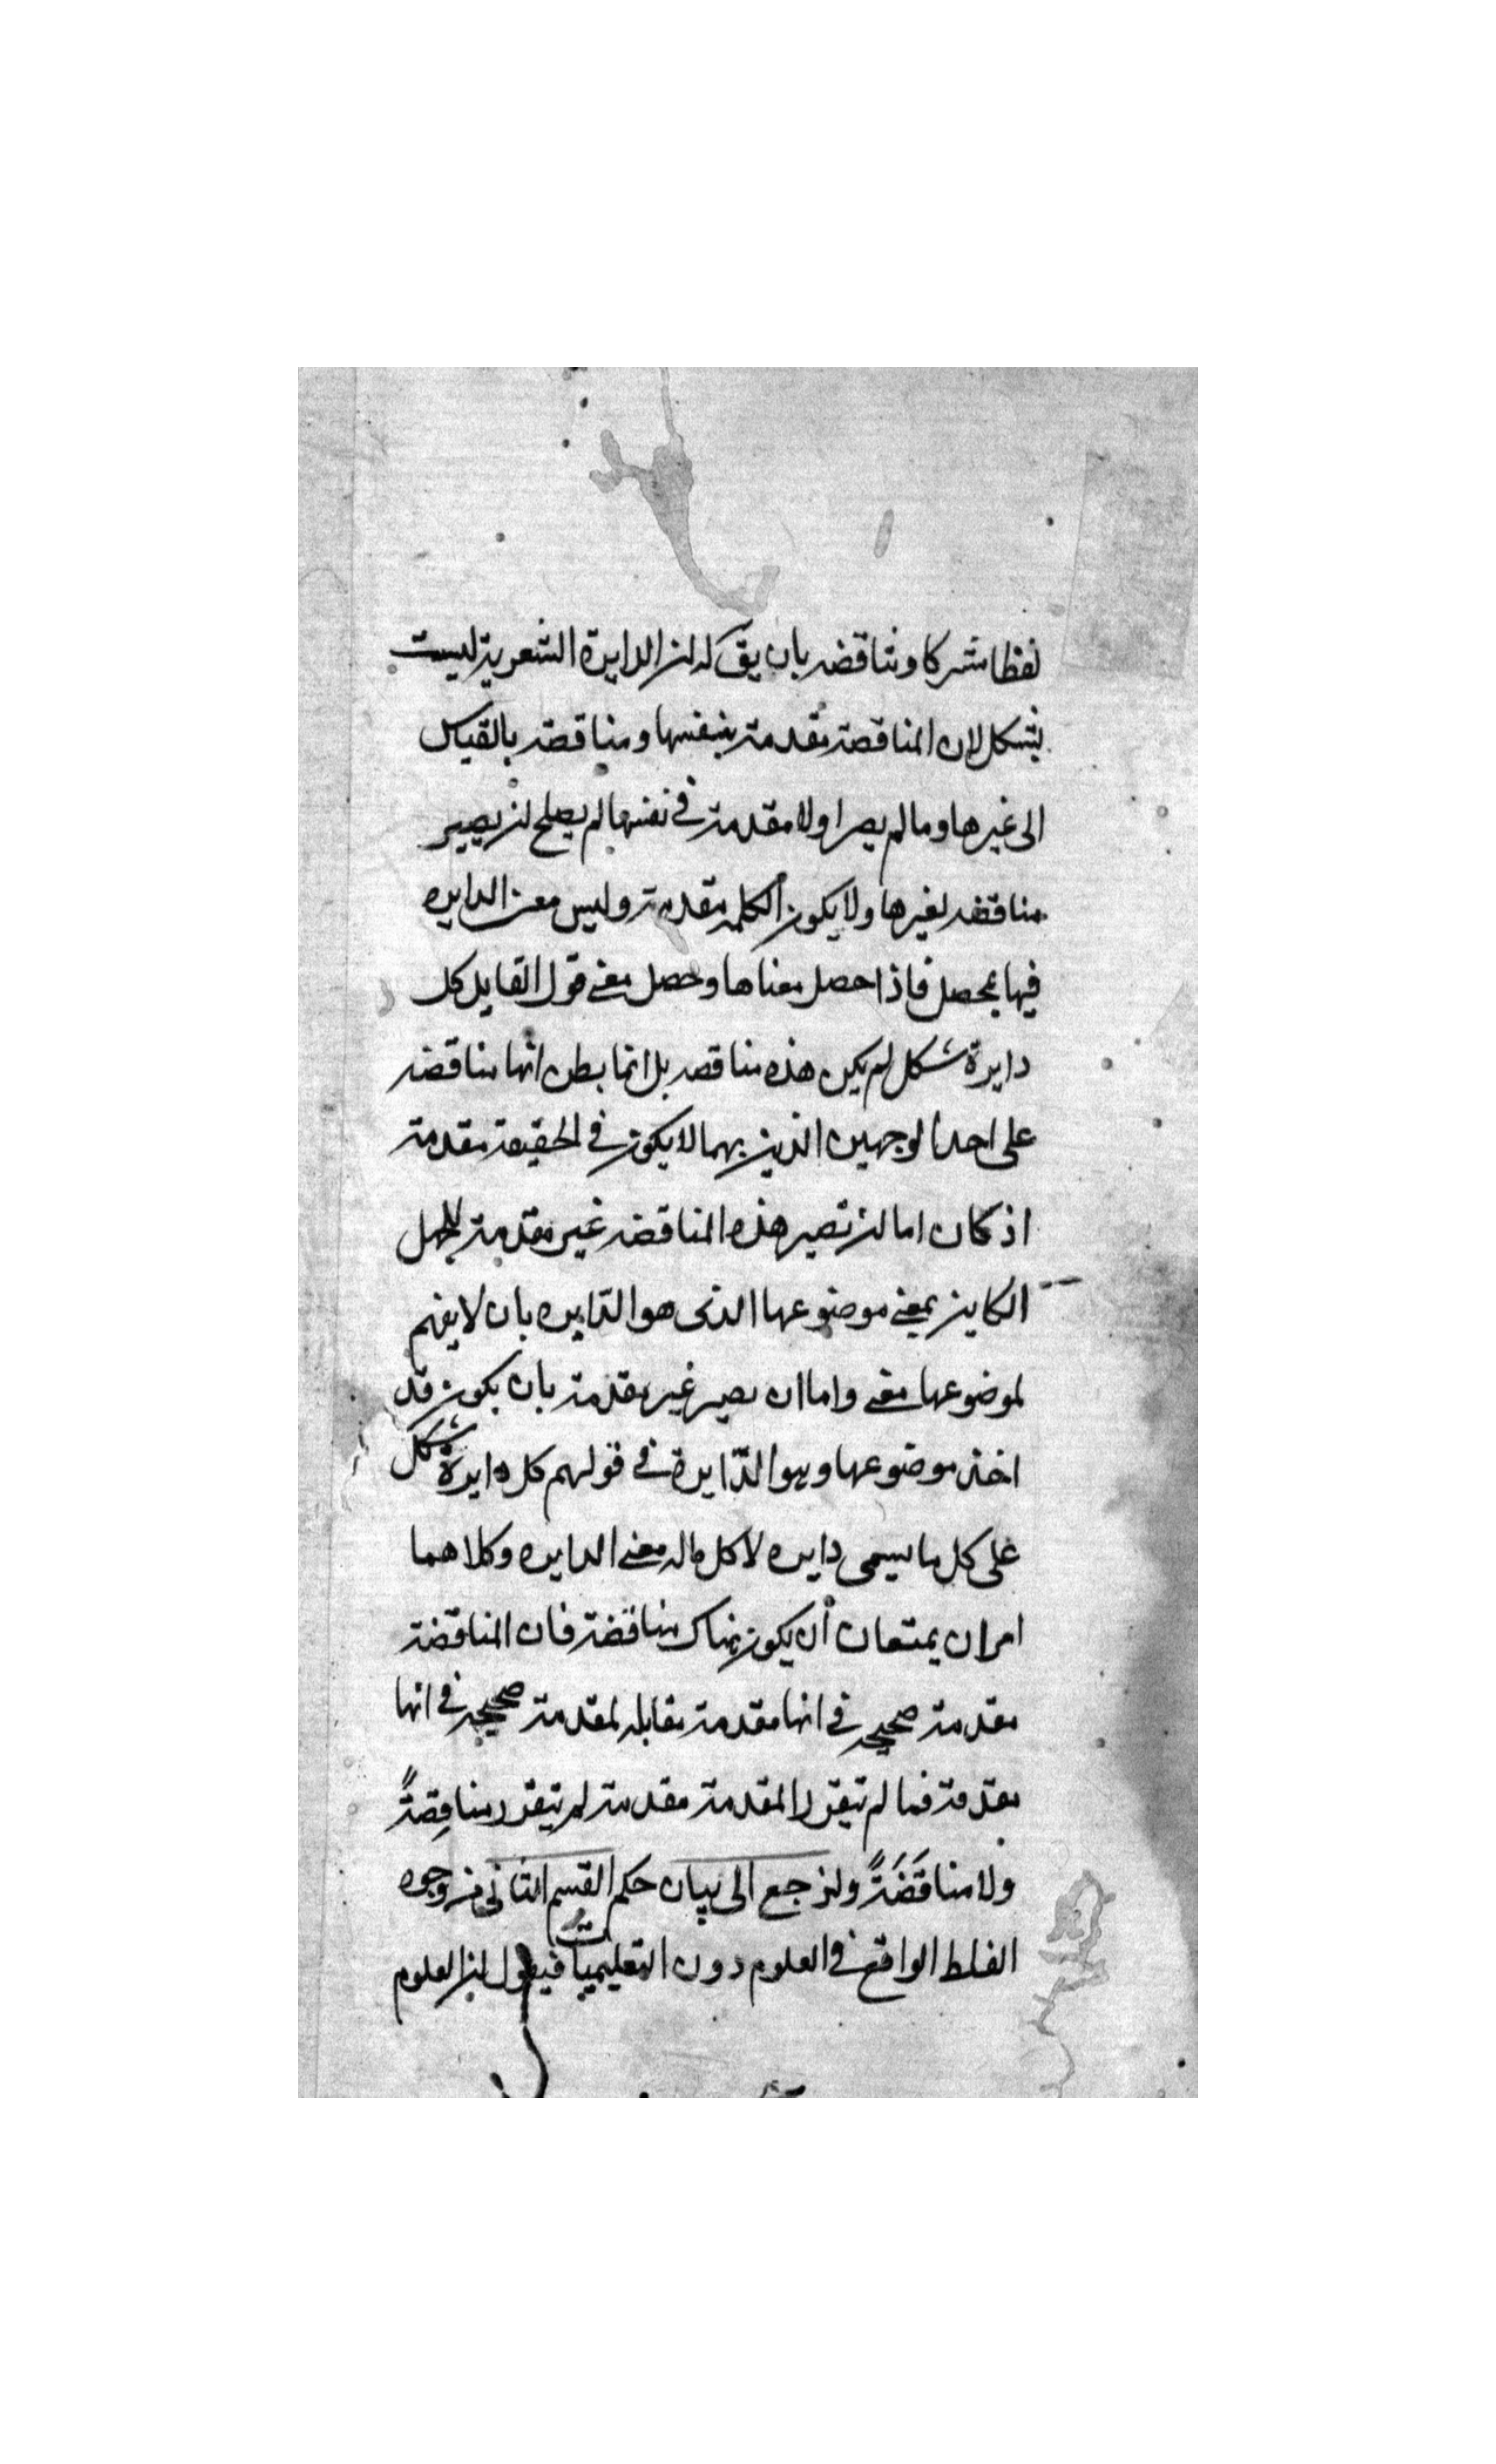 لفظا مشتركا ونناقضه بان يق له ان الدايرة الشعرية ليست
بشكل لان المناقضة مقدمة بنفسها ومناقضة بالقياس
الى غيرها وما لم يصر اولا مقدمة في نفسها لم يصلح ان يصير
مناقضه لغيرها ولا يكون الكلمه مقدمة وليس معنى الدايره
فيها يحصل فاذا حصل معناها وحصل معنى قول القايل كل
دايرة شكل لم يكن هذه مناقضه بل انما يظن انها مناقضه
على احد الوجهين الذين بهما لا يكون في الحقيقة مقدمة
اذ كان اما ان تصير هذه المناقضه غير مقدمة للجهل
الكاين بمعنى موضوعها الذى هو الدّايره بان لا يفهم
لموضوعها معنى واما ان يصير غير مقدمة بان يكون قد
اخذ موضوعها وهو الدّايرة في قولهم كل دايرة شكل
على كل ما يسمى دايره لا كل ماله معنى الدايره وكلاهما
امران يمنعان أن يكون هناك مناقضة فان المناقضة
مقدمة صحيحه في انها مقدمة مقابله لمقدمة صحيحه في انها
مقدمة فما لم تتقرر المقدمة مقدمة لم يتقرر مناقِضةً
ولا مناقَضَةً ولنرجع الى بيان حكم القسم الثانى من وجوه
الغلط الواقع في العلوم دون التعليميات فيقول ان العلوم